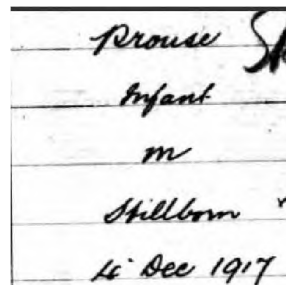 Prouse
Infant
m
Stillborn
4 Dec 1917